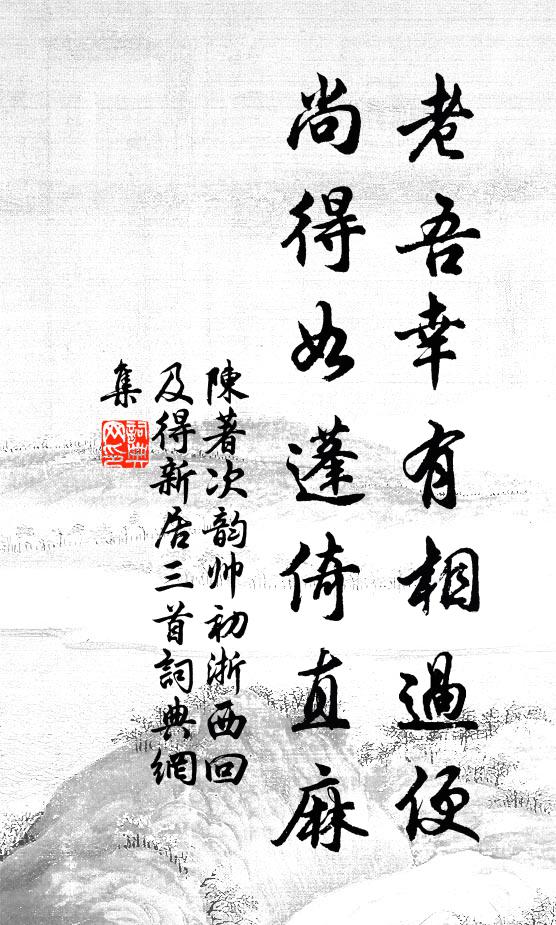 老吾幸有相過便
尚得如蓬倚直麻
陳著次韵帅初浙西回
及得新居三首詞典網
集